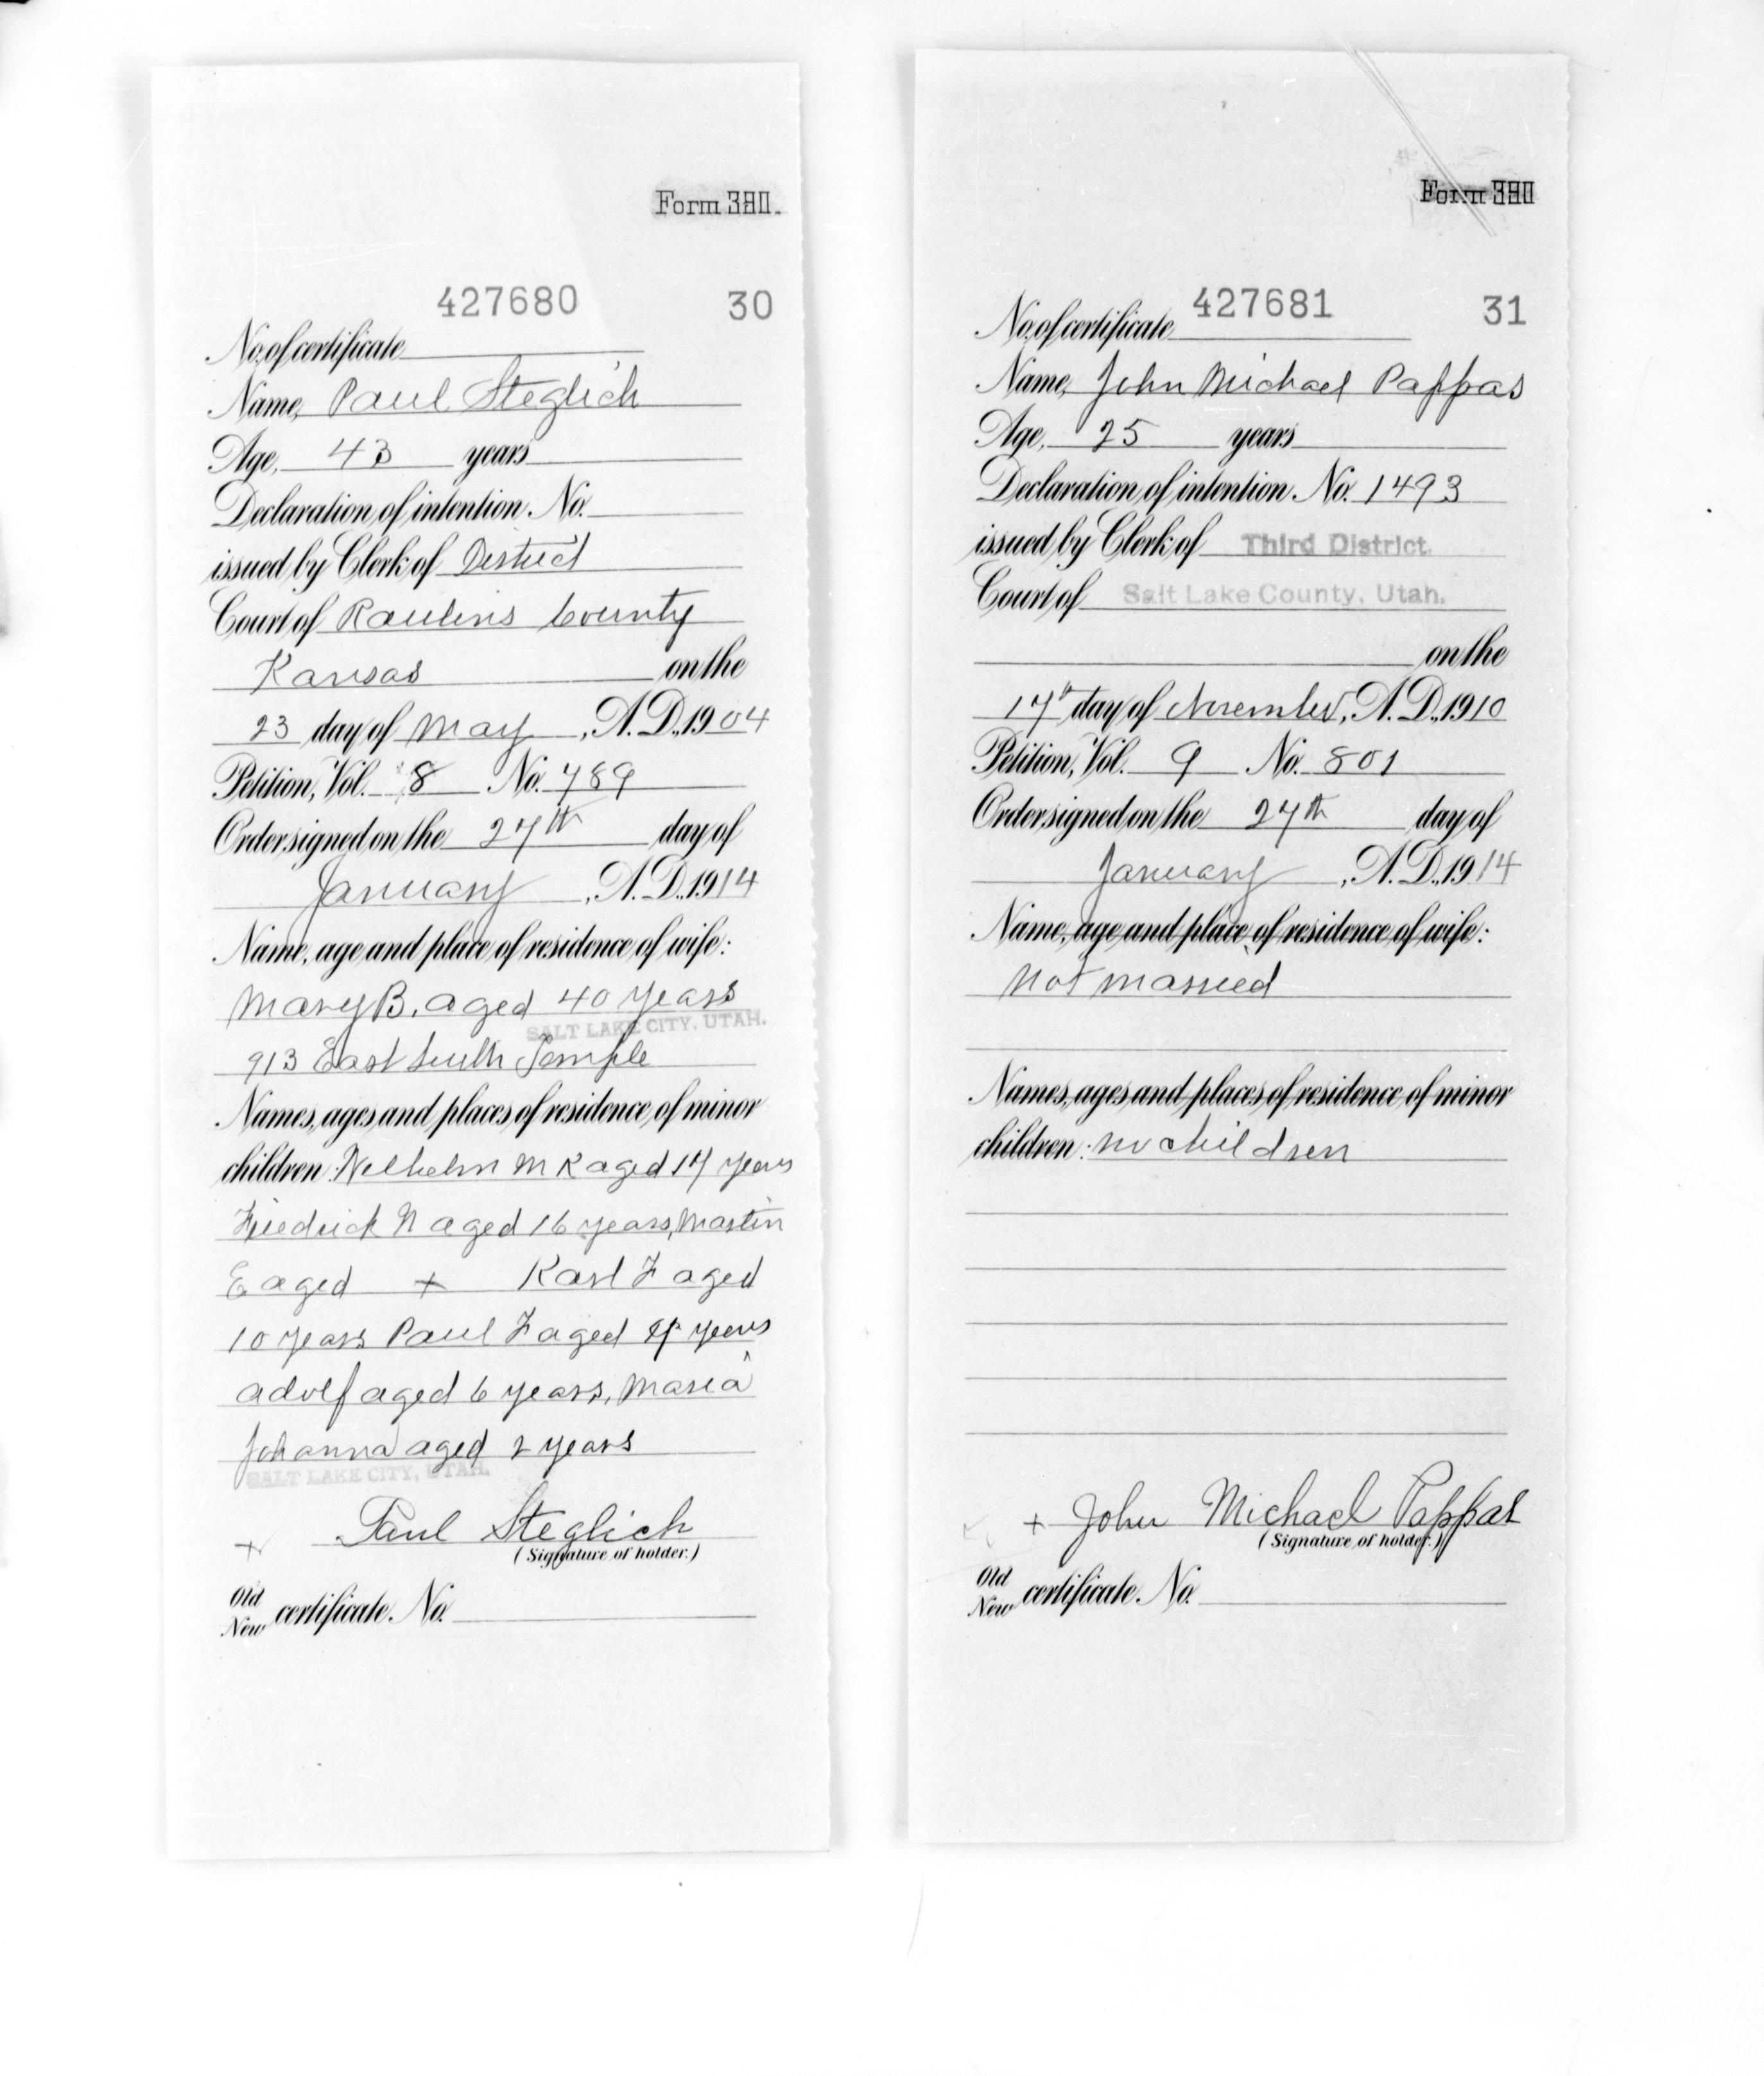 Form 380.
427680 30
No. of certificate
Name, Paul Steglich
Age, 43 years
Declaration of intention No.
issued by Clerk of District
Court of Raulins County
Kansas on the
23 day of May, A. D. 1904
Petition, Vol. 8 No. 789
Order signed on the 27th day of
January, A. D. 1914
Name, age and place of residence of wife:
Mary B. aged 40 years
SALT LAKE CITY, UTAH.
913 East South Temple
Names, ages and places of residence of minor
children: Wilhelm M K aged 17 years
Friedrick N aged 16 years, Martin
E aged + Karl F aged
10 years Paul F aged years
Adolf aged 6 years, Maria
Johanna aged 2 years
SALT LAKE CITY, UTAH.
+ Paul Steglich
(Signature of holder.)
Old
New certificate No.
Form 380
427681 31
No. of certificate
Name, John Michael Pappas
Age, 25 years
Declaration of intention No. 1493
issued by Clerk of Third District.
Court of Salt Lake County, Utah.
on the
17th day of November, A. D. 1910
Petition, Vol. 9 No. 801
Order signed on the 27th day of
January, A. D. 1914
Name, age and place of residence of wife:
Not married
Names, ages and places of residence of minor
children: no children
+ John Michael Pappas
(Signature of holder.)
Old
New certificate No.